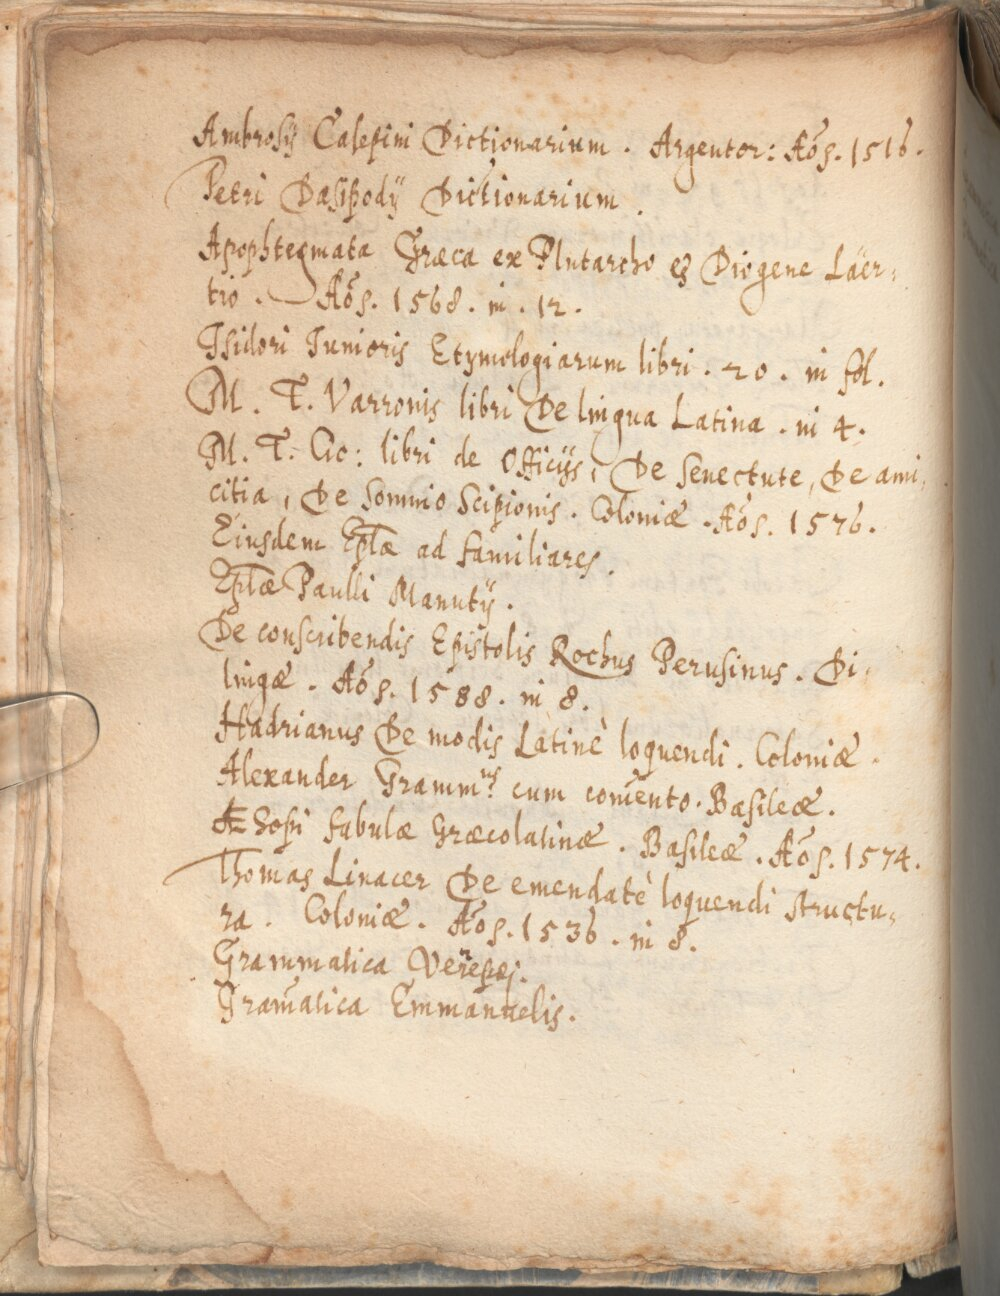 Ambrosij Calepini Dictionarium . Argentor: Aõs. 1516.
Petri Dasipodij Dictionarium .
Apophtegmata Græca ex Plutarcho & Diogene Laër-
tio . Aõs. 1568. in . 12.
Isidori Iunioris Etymologiarum libri . 20 . in fol.
M. T. Varronis libri De lingua Latina . in 4.
M. T. Cic: libri de Officijs, De Senectute, De ami-
citia, De Somnio Scipionis. Coloniæ . Aõs. 1576.
Eiusdem Eplæ ad familiares.
Eplæ Paulli Manutij.
De conscribendis Epistolis Rochus Perusinus. Di-
lingæ . Aõs. 1588. in 8.
Hadrianus De modis Latinè loquendi. Coloniæ .
Alexander Gramm.us cum com̃ento. Basileæ.
Æsopi fabulæ Græcolatinæ . Basileæ . Aõs. 1574.
Thomas Linacer De emendatè loquendi structu-
ra . Coloniæ . Aõs. 1536 . in 8.
Grammatica Verepæj.
Gram̃atica Emmanuelis.